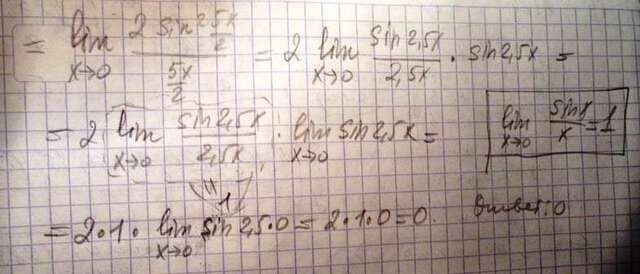 = lim x→0 2 sin² 5x/2 / 5x/2 = 2 lim x→0 sin 2,5x / 2,5x · sin 2,5x =
= 2 ( lim x→0 sin 2,5x / 2,5x ) · lim x→0 sin 2,5x =
lim x→0 sin x / x = 1
" 1
= 2 · 1 · lim x→0 sin 2,5 · 0 = 2 · 1 · 0 = 0. Ответ: 0